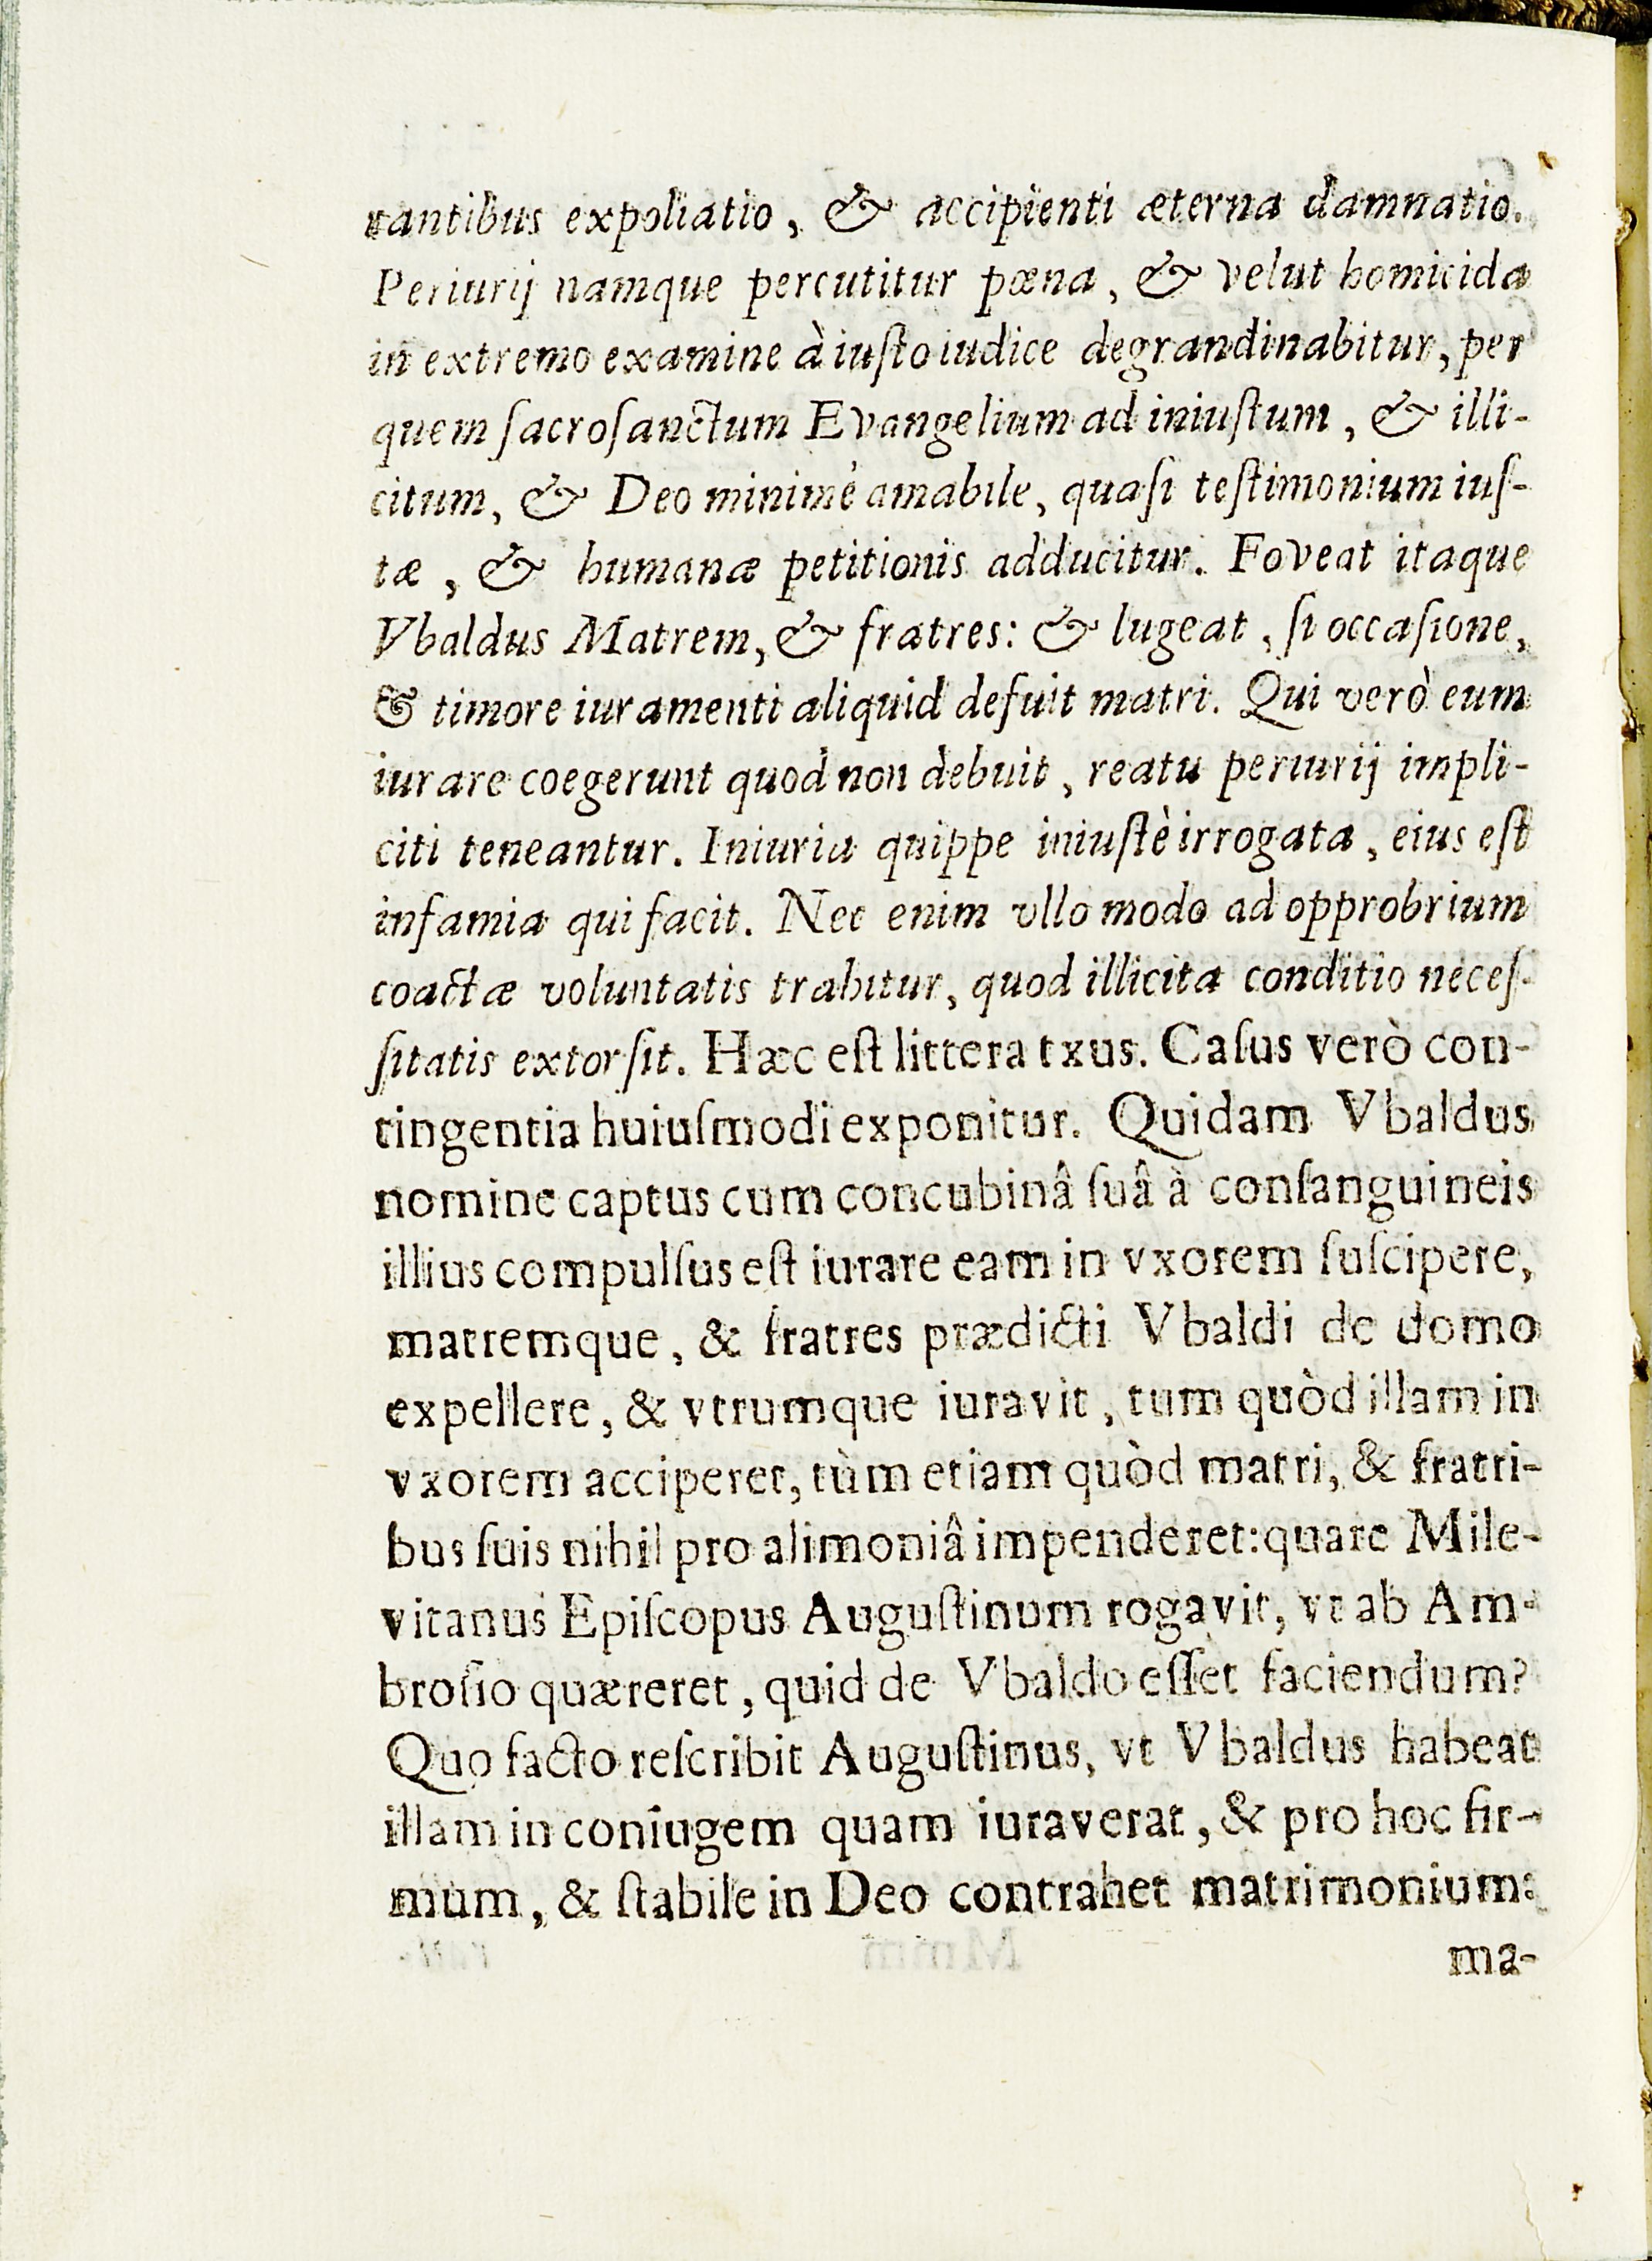 tantibus expoliatio, & accipienti æterna damnatio.
Periurij namque percutitur pœna, & velut homicida
in extremo examine à iuſto iudice degrandinabitur, per
quem ſacroſanctum Evangelium ad iniuſtum, & illi-
citum, & Deo minimè amabile, quaſi teſtimonium iuſ-
tæ, & humanæ petitionis adducitur. Foveat itaque
Vbaldus Matrem, & fratres: & lugeat, ſi occaſione,
& timore iuramenti aliquid defuit matri. Qui verò eum
iurare coegerunt quod non debuit, reatu periurij impli-
citi teneantur. Iniuria quippe iniuſtè irrogata, eius eſt
infamia qui facit. Nec enim vllo modo ad opprobrium
coactæ voluntatis trahitur, quod illicita conditio neceſ-
ſitatis extorſit. Hæc eſt littera txus. Caſus verò con-
tingentia huiuſmodi exponitur. Quidam Vbaldus
nomine captus cum concubinâ ſuâ à conſanguineis
illius compulſus eſt iurare eam in vxorem ſuſcipere,
matremque, & fratres prædicti Vbaldi de domo
expellere, & vtrumque iuravit, tum quòd illam in
vxorem acciperet, tùm etiam quòd matri, & fratri-
bus ſuis nihil pro alimoniâ impenderet: quare Mile-
vitanus Epiſcopus Auguſtinum rogavit, vt ab Am-
broſio quæreret, quid de Vbaldo eſſet faciendum?
Quo facto reſcribit Auguſtinus, vt Vbaldus habeat
illam in coniugem quam iuraverat, & pro hoc fir-
mum, & ſtabile in Deo contrahet matrimonium:
ma-